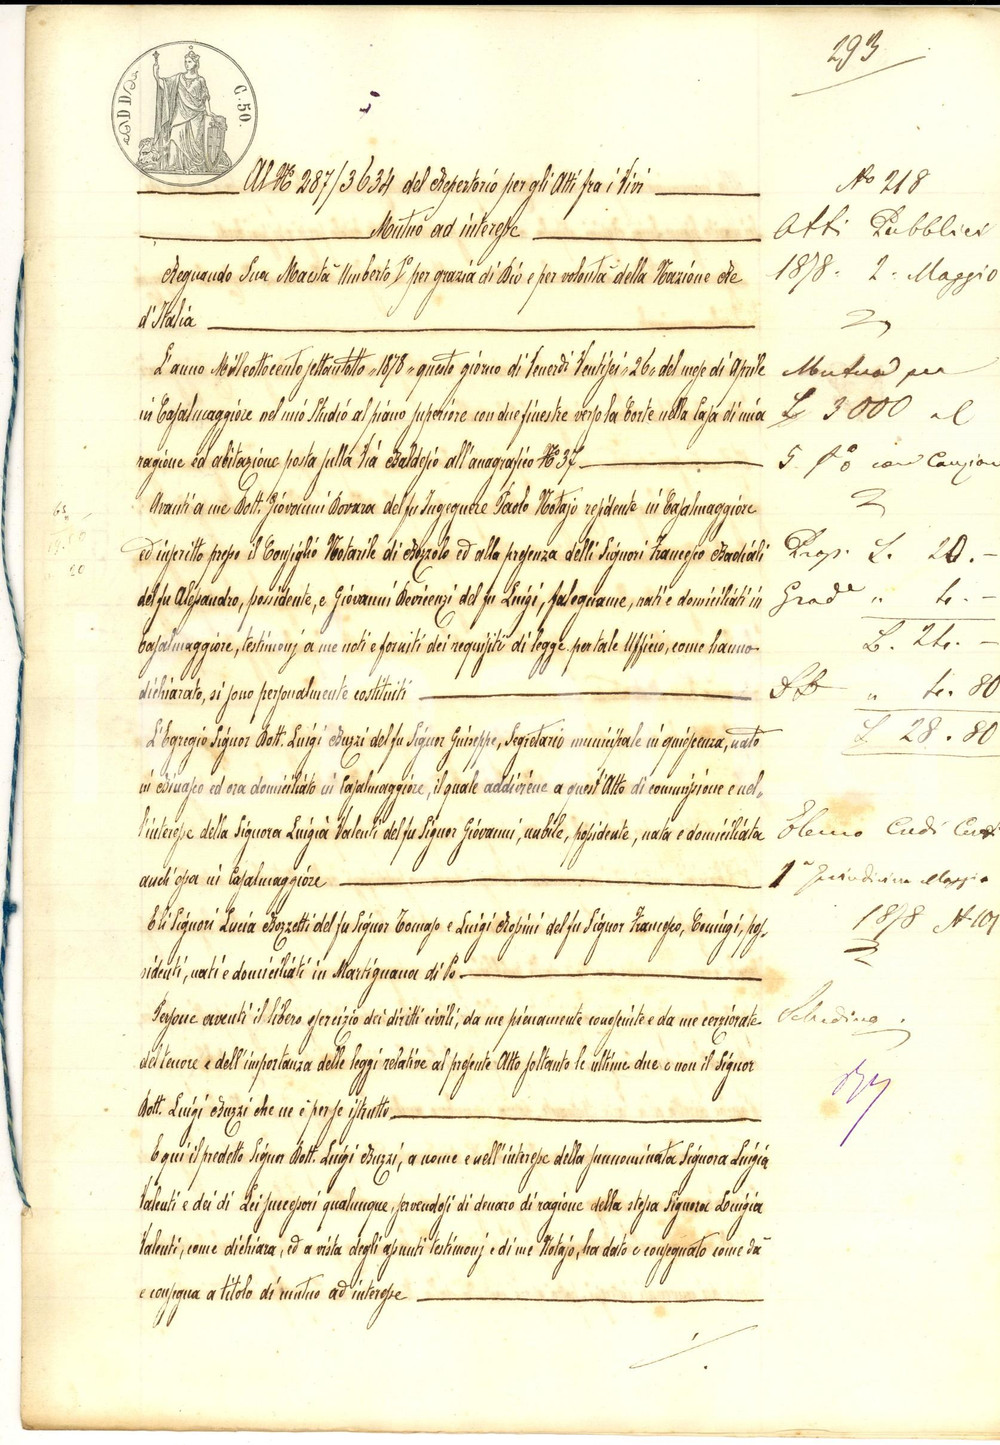 293
C. 50.
Al N° 287/3634 del Repertorio per gli Atti fra i Vivi
Mutuo ad interesse
Regnando Sua Maestà Umberto I° per grazia di Dio e per volontà della Nazione Re
d'Italia
L'anno Milleottocentosettantotto "1878" questo giorno di Venerdì Ventisei "26" del mese di Aprile
in Casalmaggiore nel mio Studio al piano superiore con due finestre verso la Corte nella Casa di mia
ragione ed abitazione posta sulla Via Baldesio all'anagrafico N° 37
Avanti a me Dott. Giovanni Bovara del fu Ingegnere Paolo Notajo residente in Casalmaggiore
ed inscritto presso il Consiglio Notarile di Bozzolo ed alla presenza delli Signori Francesco Badiali
del fu Alessandro, possidente, e Giovanni Devicenzi del fu Luigi, falegname, nati e domiciliati in
Casalmaggiore, testimonj a me noti e forniti dei requisiti di legge per tale Ufficio, come hanno
dichiarato, si sono personalmente costituiti
L'Egregio Signor Dott. Luigi Buzzi del fu Signor Giuseppe, Segretario municipale in quiescenza, nato
in Binasco ed ora domiciliato in Casalmaggiore, il quale addiviene a quest'Atto di commissione e nel-
l'interesse della Signora Luigia Valenti del fu Signor Giovanni, nubile, possidente, nata e domiciliata
anch'essa in Casalmaggiore
E li Signori Lucia Bozzetti del fu Signor Tomaso e Luigi Rossini del fu Signor Francesco, Coniugi, pos-
sidenti, nati e domiciliati in Martignana di Po
Persone aventi il libero esercizio dei diritti civili, da me pienamente conosciute e da me cerziorate
del tenore e dell'importanza delle leggi relative al presente Atto soltanto le ultime due e non il Signor
Dott. Luigi Buzzi che ne è per se istrutto
E qui il predetto Signor Dott. Luigi Buzzi, a nome e nell'interesse della sunnominata Signora Luigia
Valenti e dei di Lei successori qualunque, servendosi di denaro di ragione della stessa Signora Luigia
Valenti, come dichiara, ed a vista degli assunti testimonj e di me Notajo, ha dato e consegnato come dà
e consegna a titolo di mutuo ad interesse
N° 218
Atti Pubblici
1878. 2. Maggio
Mutuo per
L. 3000 al
5 p% con Cauzion
Prop. L. 20.-
Grad° " 4.-
L. 24.-
" 4.80
L. 28.80
Maggio
1878 N 101